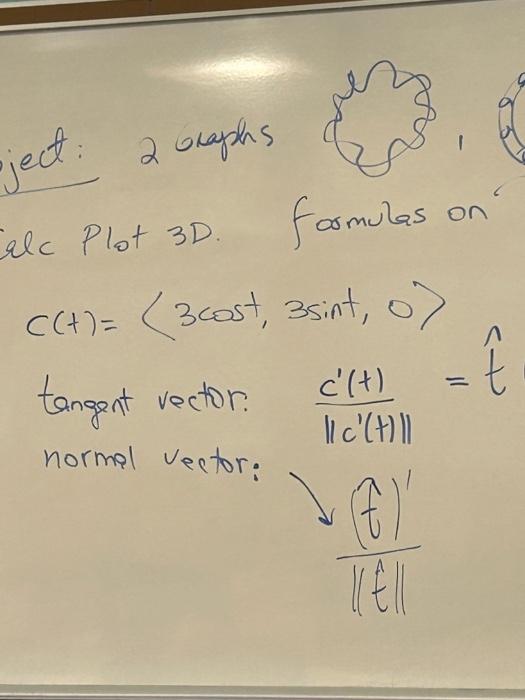 ject: 2 Graphs ,
Calc Plot 3D. formulas on
c(t) = ⟨3cost, 3sint, 0⟩
tangent vector: c'(t) / ||c'(t)|| = t̂
normal vector: (t̂)' / ||t̂||